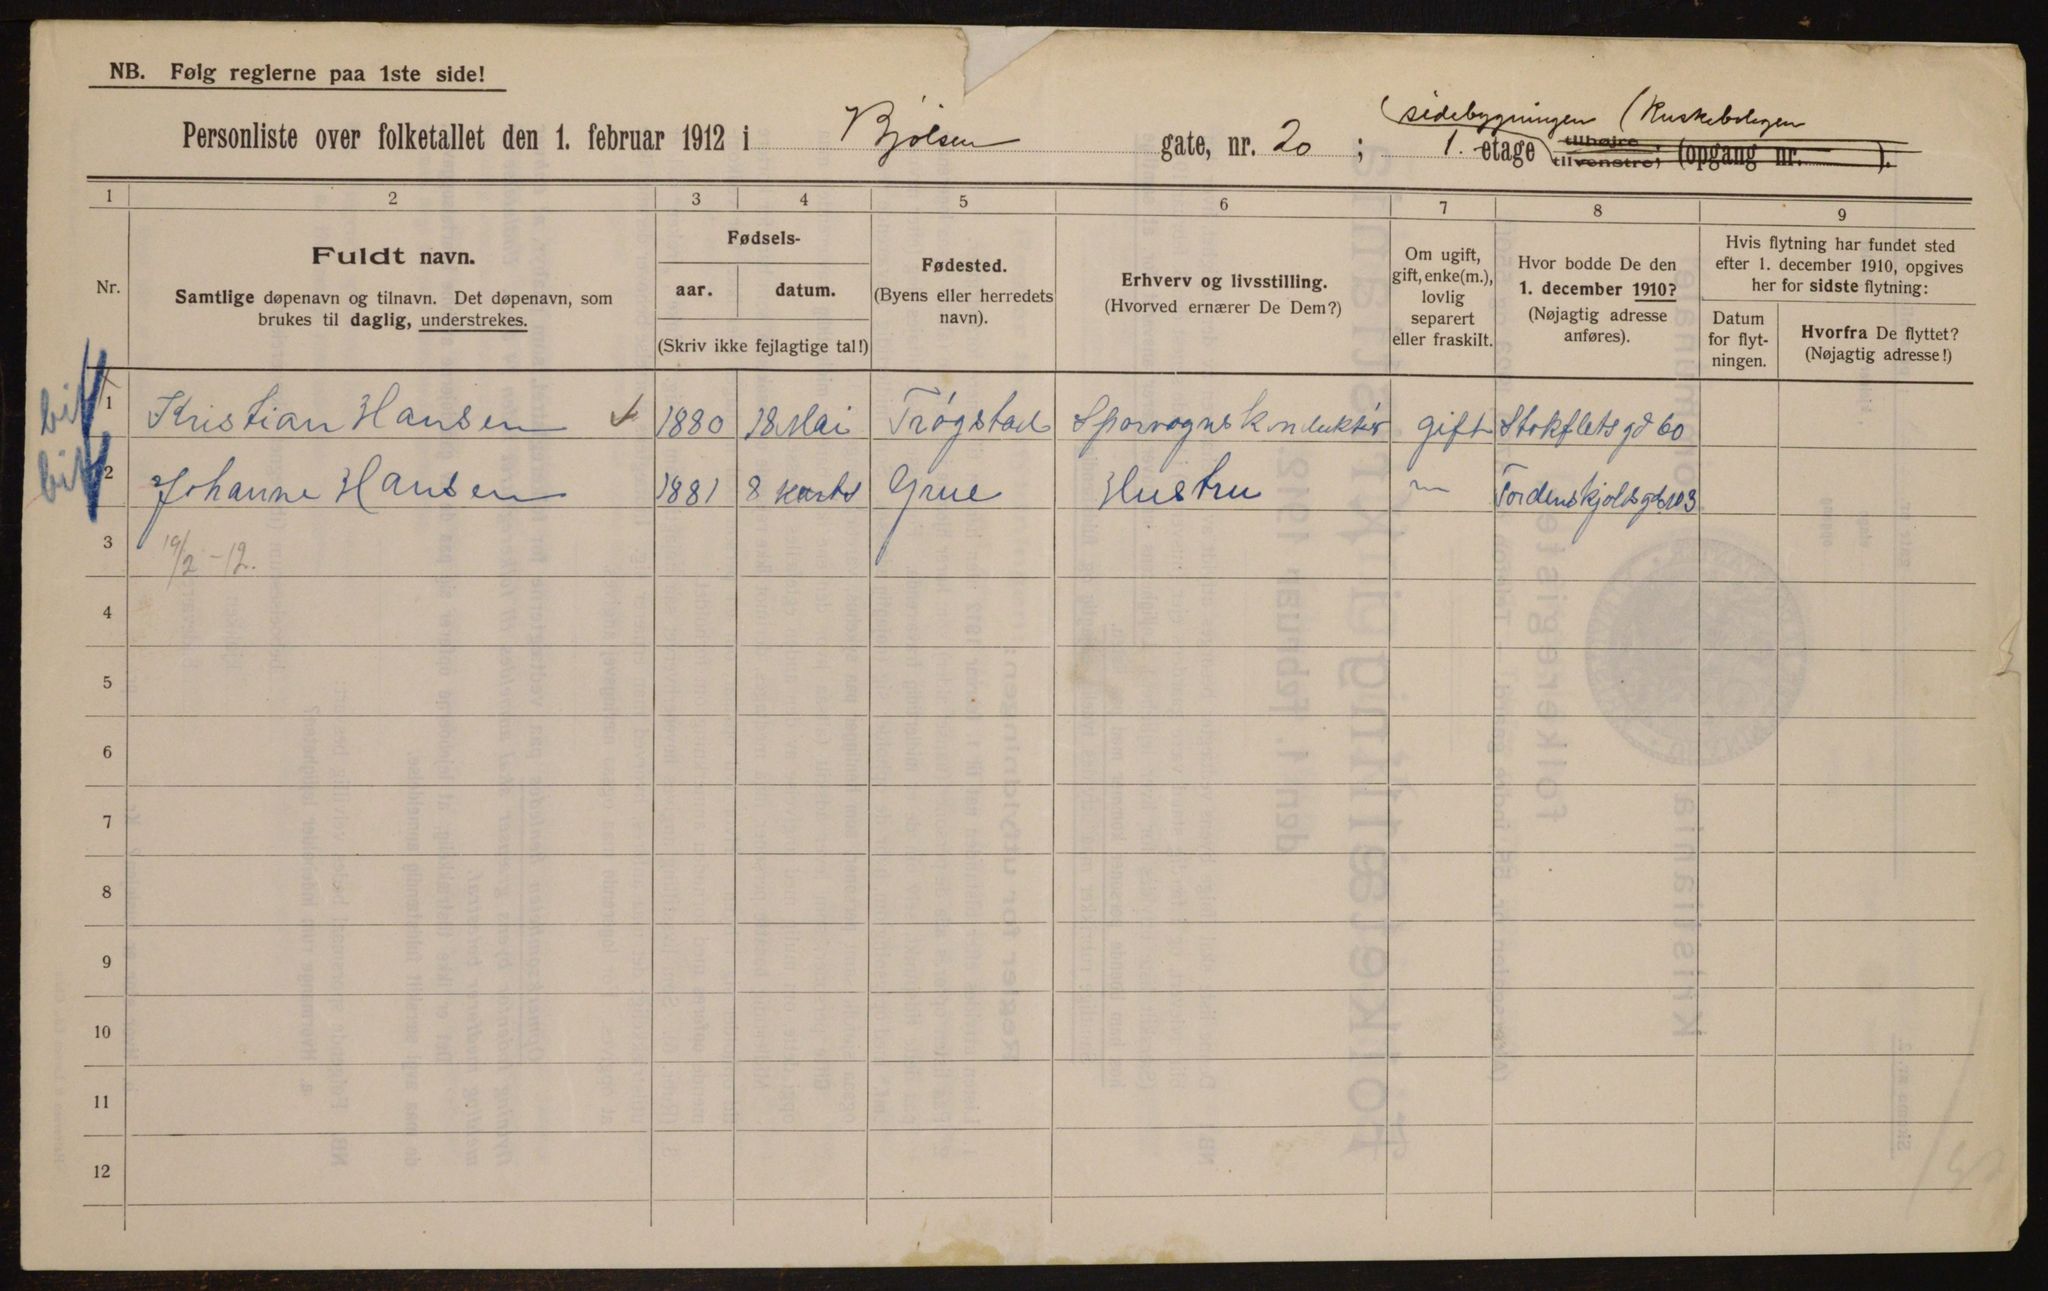 NB. Følg reglerne paa 1ste side!
sidebygningen (Kuskeboligen
Personliste over folketallet den 1. februar 1912 i Bjølsen gate, nr. 20 ; 1. etage tilhøire, tilvenstre, (opgang nr. ).
1 2 3 4 5 6 7 8 9
Nr.
Fuldt navn.
Samtlige døpenavn og tilnavn. Det døpenavn, som
brukes til daglig, understrekes.
Fødsels-
aar. datum.
(Skriv ikke fejlagtige tal!)
Fødested.
(Byens eller herredets
navn).
Erhverv og livsstilling.
(Hvorved ernærer De Dem?)
Om ugift,
gift, enke(m.),
lovlig
separert
eller fraskilt.
Hvor bodde De den
1. december 1910?
(Nøjagtig adresse
anføres).
Hvis flytning har fundet sted
efter 1. december 1910, opgives
her for sidste flytning:
Datum
for flyt-
ningen.
Hvorfra De flyttet?
(Nøjagtig adresse!)
1 Kristian Hansen 1880 18 Mai Trøgstad Sporvognsknduktør gift Stokfletsgd 60
2 Johanne Hansen 1881 8 Grue Hustru Tordenskjoldsgd 103
3 19/2 - 12.
4
5
6
7
8
9
10
11
12